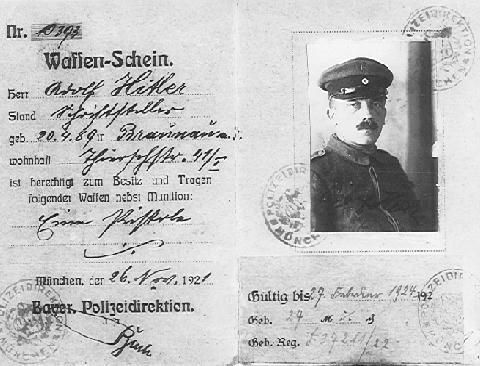 Nr.
Waffen-Schein.
Herr Adolf Hitler
Stand Schriftsteller
geb. 20.4.89 in Braunau a. I.
wohnhaft Thierschstr. 41/I
ist berechtigt zum Besitz und Tragen
folgender Waffen nebst Munition:
Eine Pistole
München, der 26. Nov. 1921
Bayer. Polizeidirektion.
POLIZEIDIREKTION
MÜNCHEN
Gültig bis 27. Februar 1924 192
Geb. 27 M
Geb. Reg.